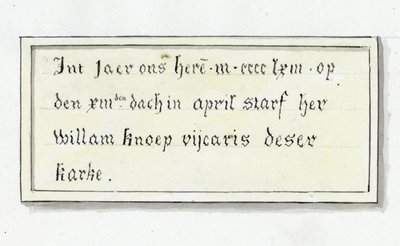 Int Jaer ons herē · m · cccc lxiii · op
den xiii den dach in april starf her
Willam knoep vijcaris deser
karke .